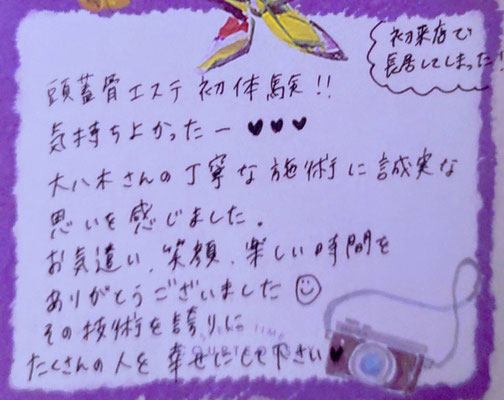 初来店で
長居してしまった!
頭蓋骨エステ初体験!!
気持ちよかったー♥♥♥
大八木さんの丁寧な施術に誠実な
思いを感じました。
お気遣い、笑顔、楽しい時間を
ありがとうございました☺
その技術を誇りに
たくさんの人を幸せにして下さい♥